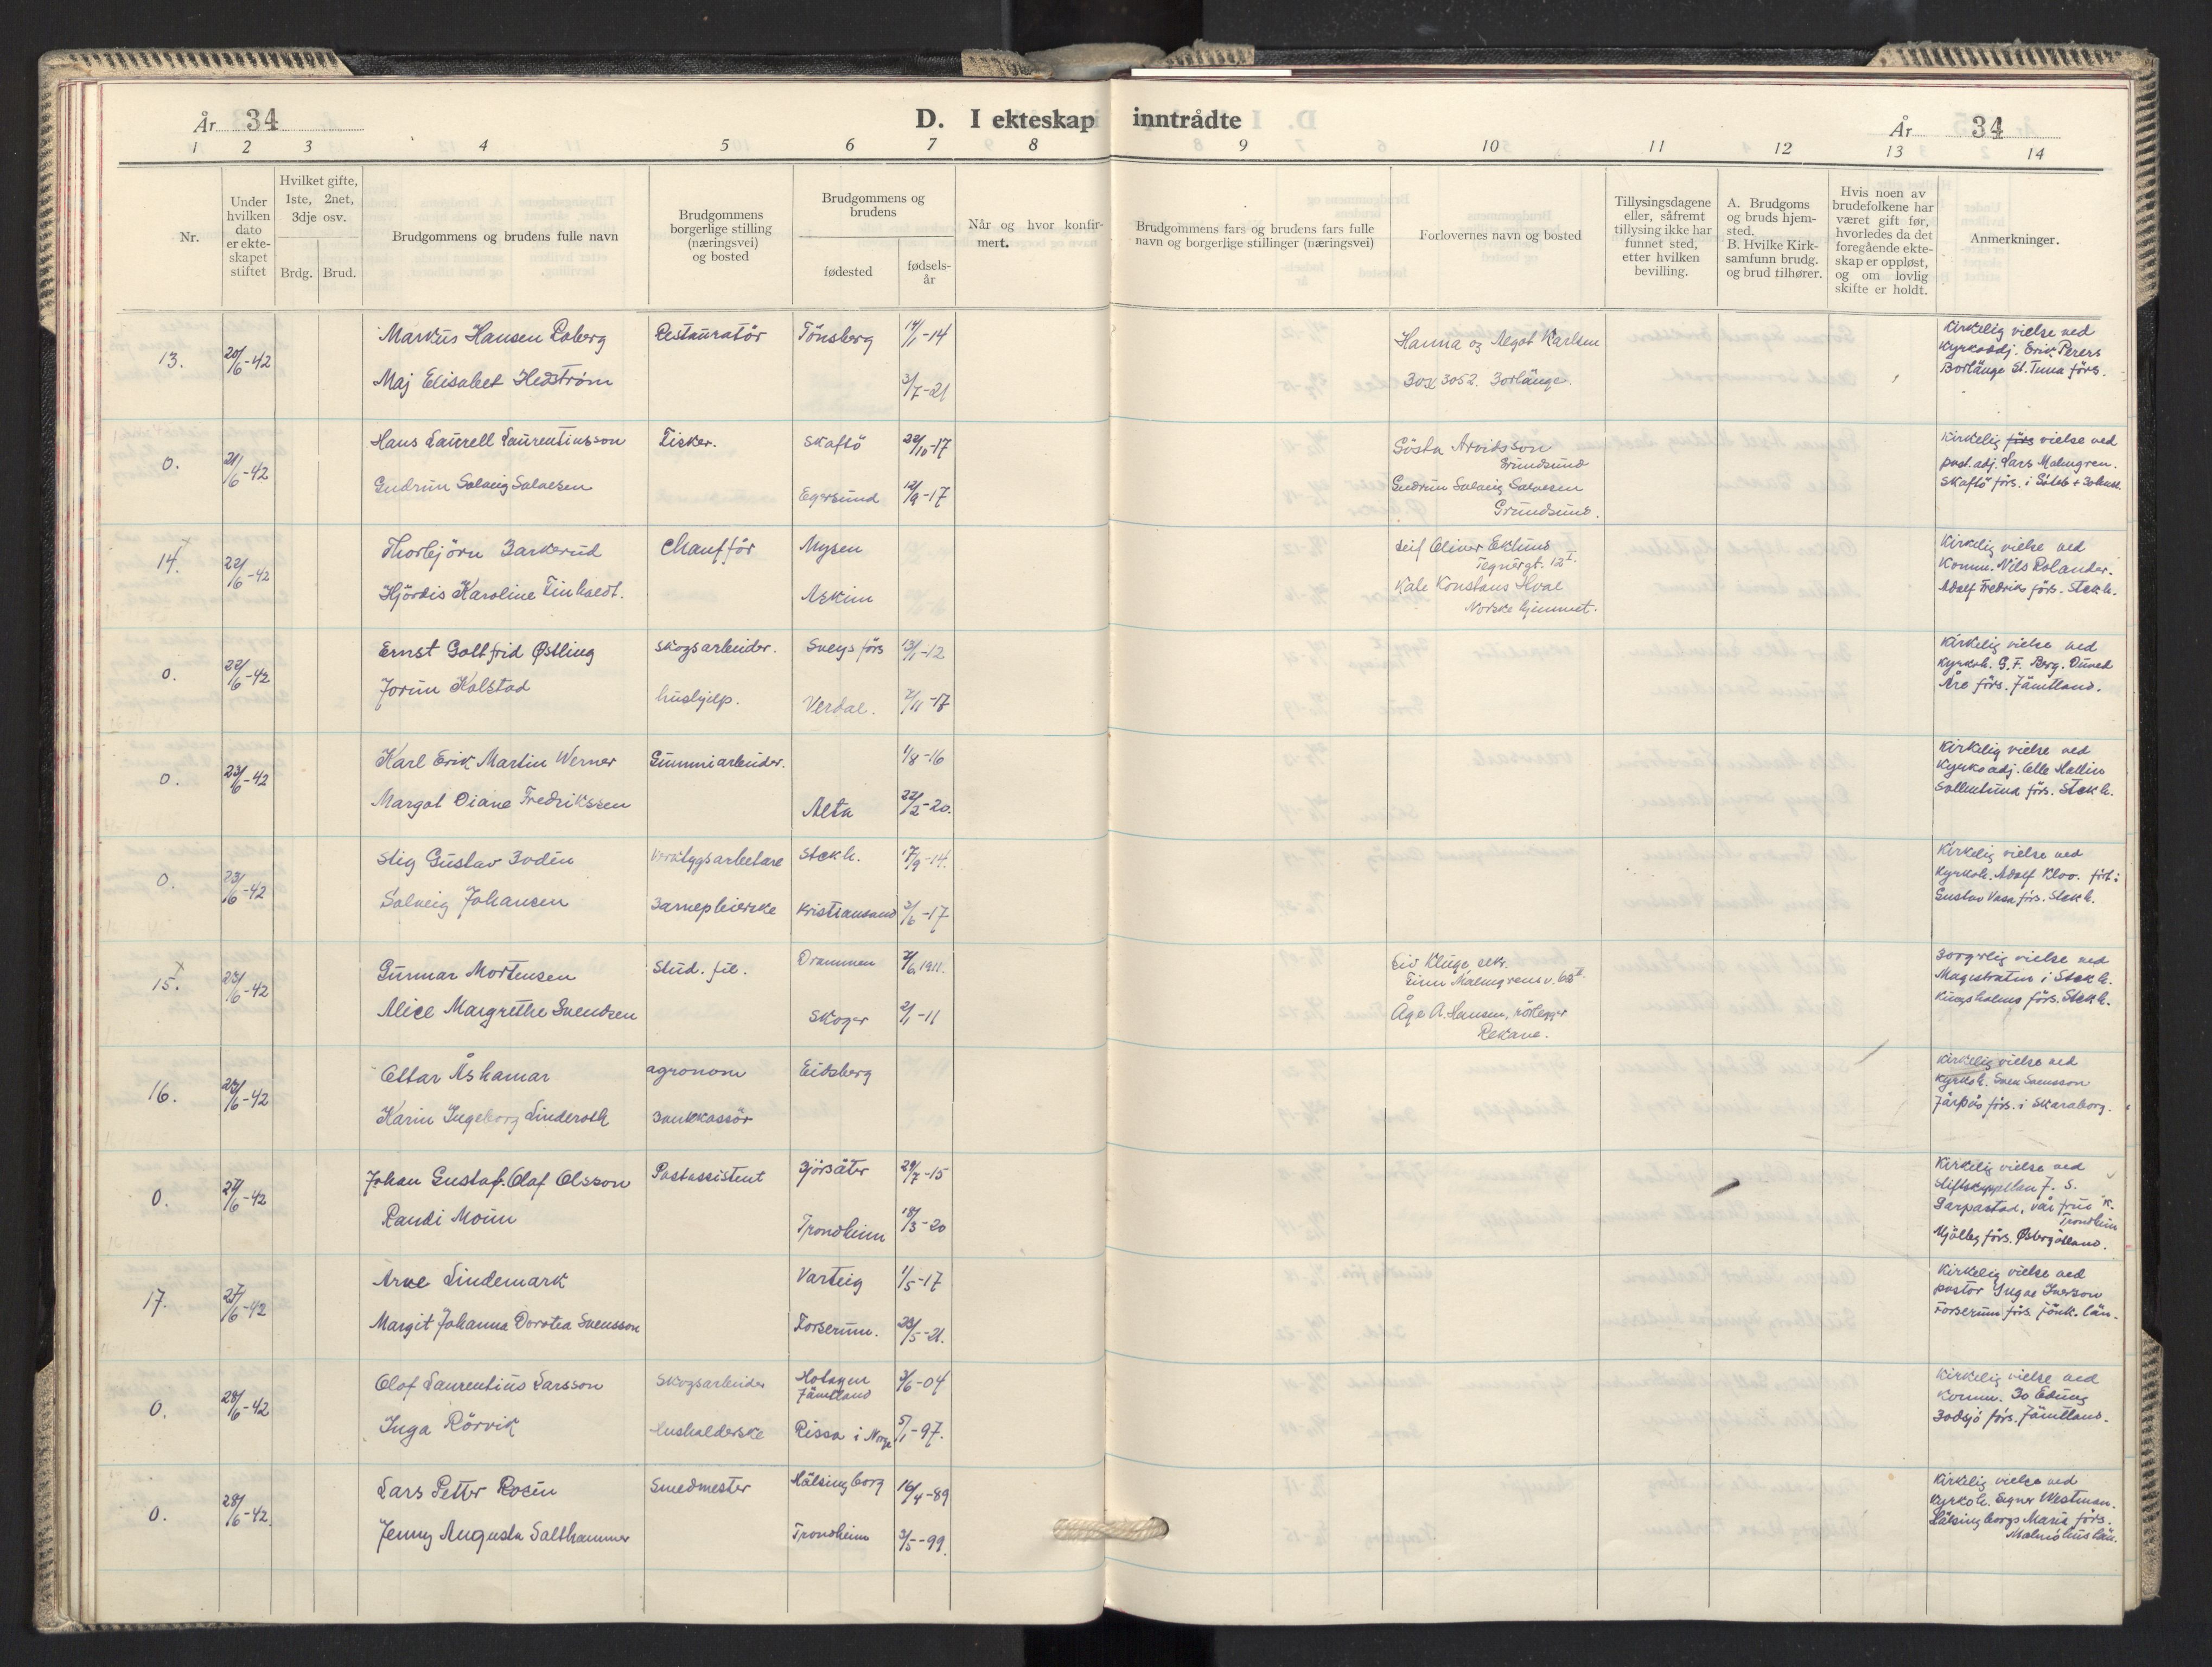 År 34
D. I ekteskap inntrådte
År 34
1 2 3 4 5 6 7 8 9 10 11 12 13 14
Nr.
Under hvilken dato er ekteskapet stiftet
Hvilket gifte, 1ste, 2net, 3dje osv.
Brdg. Brud.
Brudgommens og brudens fulle navn
Brudgommens borgerlige stilling (næringsvei) og bosted
Brudgommens og brudens
fødested
fødsels-år
Når og hvor konfirmert.
Brudgommens fars og brudens fars fulle navn og borgerlige stillinger (næringsvei)
Forlovernes navn og bosted
Tillysingsdagene eller, såfremt tillysing ikke har funnet sted, etter hvilken bevilling.
A. Brudgoms og bruds hjemsted.
B. Hvilke Kirksamfunn brudg. og brud tilhører.
Hvis noen av brudefolkene har været gift før, hvorledes da det foregående ekteskap er oppløst, og om lovlig skifte er holdt.
Anmerkninger.
13. 20/6-42 Markus Hansen Roberg Restauratör Tönsberg 14/1-14 Hanna og Algot Karlsen
Maj Elisabet Hedström 3/7-21 Box 3052. Borlänge.
Kirkelig vielse ved
Kyrkoadj. Erik Perers
Borlänge St. Tuna förs.
0. 21/6-42 Hans Laurell Laurentiusson Fisker. Skaftö 22/10-17 Gösta Arvidsson
Grundsund
Gudrun Solveig Salvesen Egersund 12/9-17 Gudrun Solveig Salvesen
Grundsund.
Kirkelig förs vielse ved
past. adj. Lars Malmgren.
Skaftö förs. i Göteb + Bohusl.
14. 22/6-42 Thorbjörn Barkerud Chaufför Mysen Leif Oliver Eklund
Tegnergt. 12 I.
Hjördis Karoline Finholdt. Askim Kåle Konstans Hval
Norske hjemmet.
Kirkelig vielse ved
Komm. Nils Rolander.
Adolf Fredriks förs. Stckh.
0. 22/6-42 Ernst Gottfrid Østling Skogsarbeider. Svegs förs 13/1-12
Jorun Kolstad hushjelp. Verdal. 7/11-17
Kirkelig vielse ved
Kyrkoh. G. F. Berg. Duved
Åre förs. Jämtland.
0. 23/6-42 Karl Erik Martin Werner Gummiarbeider. 1/8-16
Margot Diane Fredrikssen Alta 22/2-20.
Kirkelig vielse ved
Kyrkoadj. Olle Hallin
Sollentuna förs. Stckh.
0. 23/6-42 Stig Gustav Bodén Verktygsarbetare Stckh. 17/9-14.
Solveig Johansen Barnepleierske Kristiansand 3/6-17
Kirkelig vielse ved
Kyrkoh. Adolf Kloo. förs. i
Gustav Vasa förs. Stckh.
15. 23/6-42 Gunnar Mortensen Stud. fil. Drammen 2/6 1911. Liv Kluge, sekr.
Finn Malmgrens v. 62 II
Alice Margrethe Svendsen Skoger 2/1-11 Åge A. Hansen, rörlegger
Rekane.
Borgerlig vielse ved
Magistraten i Stckh.
Kungsholms förs. Stckh.
16. 23/6-42 Ottar Åshamar agronom Eidsberg
Karin Ingeborg Linderoth Bankkassör
Kirkelig vielse ved
Kyrkoh. Sven Svensson
Järpås förs. i Skaraborg.
0. 27/6-42 Johan Gustaf Olof Olsson Postassistent Björsäter 29/7-15
Randi Moum Trondheim 18/3-20
Kirkelig vielse ved
Stiftskappellan J. S.
Garpastad, vår frue K.
Trondheim
Mjölby förs. Østergötland.
17. 27/6-42 Arne Lindemark Varteig 1/5-17
Margit Johanna Dorotea Svensson Forserum. 23/5-21.
Kirkelig vielse ved
pastor Ingve Iverson
Forserum förs. Jönk. län.
0. 28/6-42 Olof Laurentius Larsson Skogsarbeider Hotagen Jämtland 3/6-04
Inga Rörvik husholderske Rissa i Norge 5/1-97.
Kirkelig vielse ved
Komm. Bo Edung
Bodsjö förs. Jämtland.
0. 28/6-42 Lars Petter Rosén Smedmester Hälsingborg 16/4-89
Jenny Augusta Salthammer Trondheim 3/5-99.
Kirkelig vielse ved
Kyrkoh. Signer Westman.
Hälsingborgs Maria förs.
Malmöhus län.